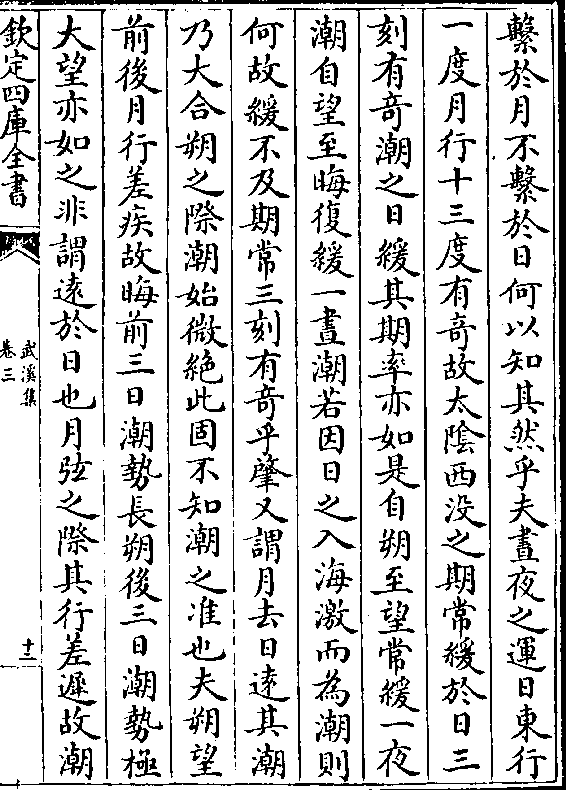 繫於月不繫於日何以知其然乎夫晝夜之運日東行
一度月行十三度有奇故太陰西没之期常緩於日三
刻有奇潮之日緩其期率亦如是自朔至望常緩一夜
潮自望至晦復緩一晝潮若因日之入海激而為潮則
何故緩不及期常三刻有奇乎肇又謂月去日逺其潮
乃大合朔之際潮始微絶此固不知潮之准也夫朔望
前後月行差疾故晦前三日潮勢長朔後三日潮勢極
大望亦如之非謂逺於日也月弦之際其行差遲故潮
欽定四庫全書
武溪集
卷三
十二